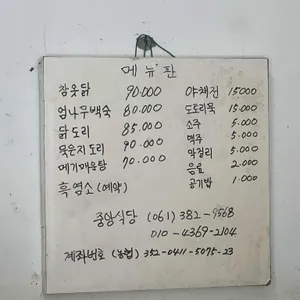 메뉴판
참옻닭 90.000 야채전 15000
엄나무백숙 80.000 도토리묵 15.000
닭도리 85.000 소주 5.000
묵은지도리 90.000 맥주 5.000
메기매운탕 70.000 막걸리 5.000
흑염소(예약) 음료 2.000
공기밥 1.000
중앙식당 (061) 382-9568
010-4369-2104
계좌번호 (농협) 352-0411-5075-23